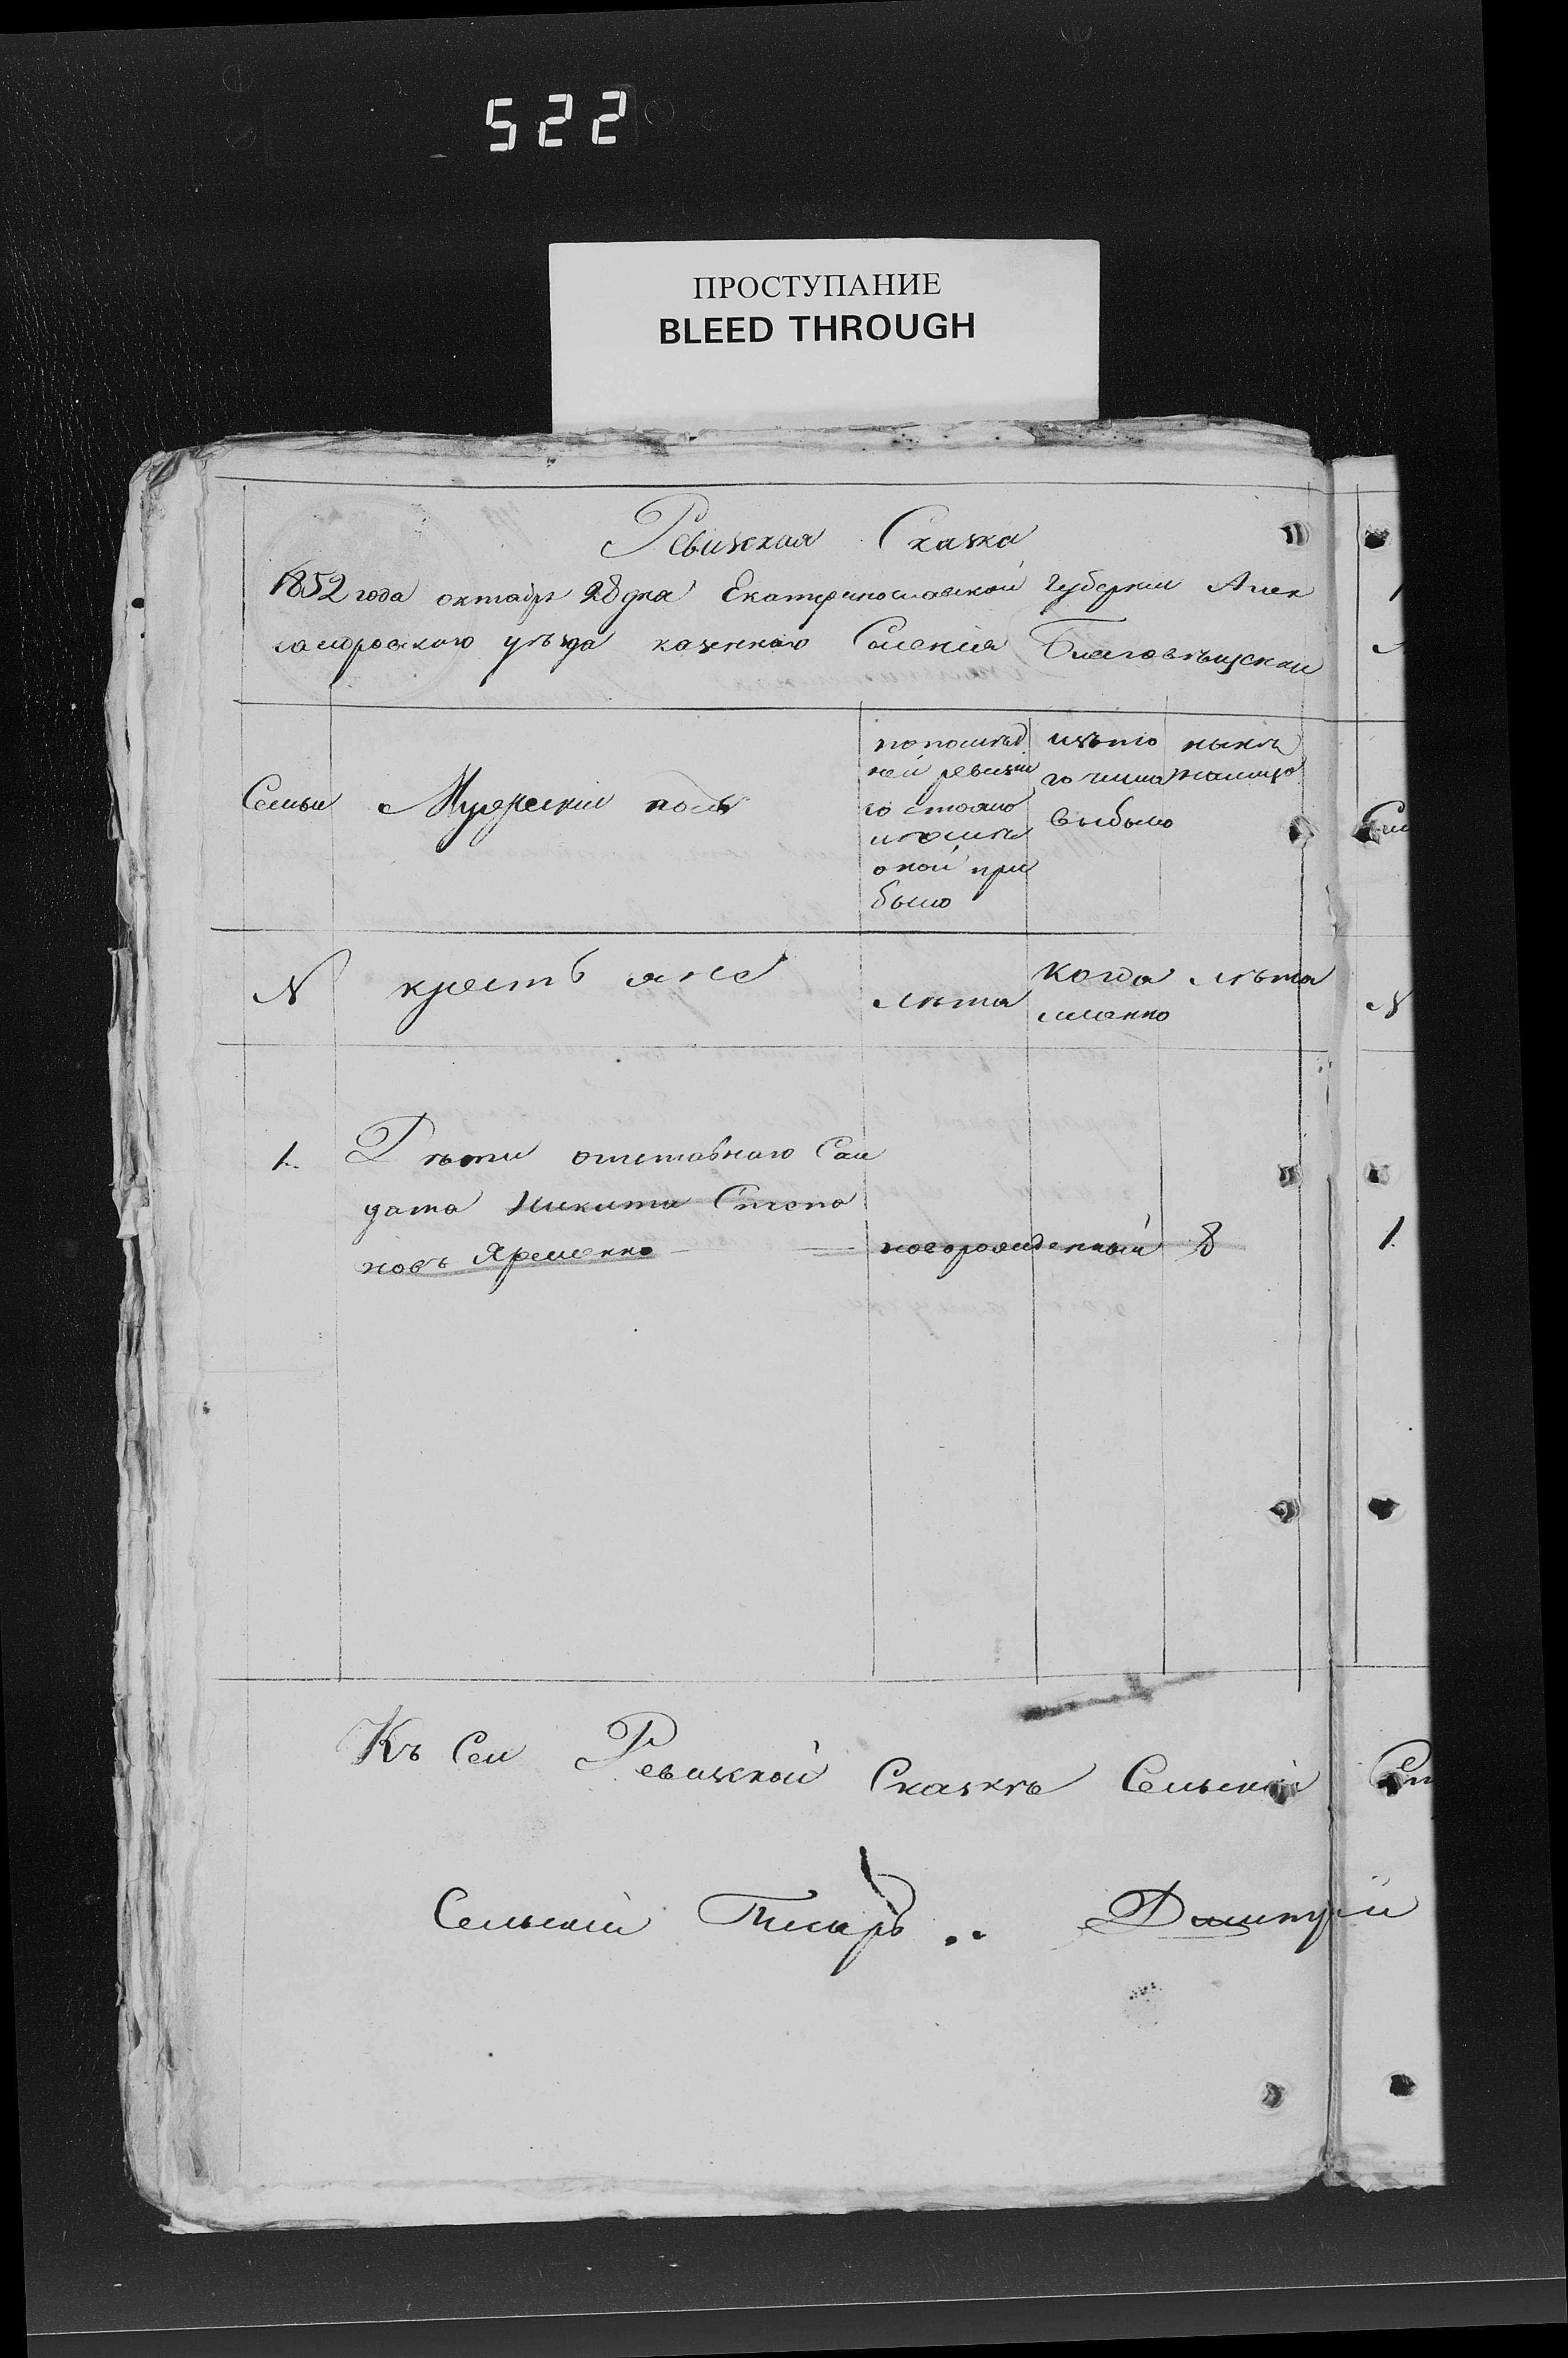 522
ПРОСТУПАНИЕ
BLEED THROUGH
Ревизкая Сказка
1852 года октябр 28 дня Екатеринославской Губернии Алек
сандровского уѣзда казеннаго Селенія Благовѣщенки
Семьи
Мужескій полъ
попослѣд
ней ревизіи
состояло
ипослѣ
оной при
было
изъ то
го числа
выбыло
нынѣ
налицо
N
крестьяне
лѣта
Когда
именно
лѣта
N
1.
Дѣти отставнаго Сал
дата Никита Степа
новъ Яременко
новорожденный
8
1.
Къ Сей Ревизкой Сказкѣ Сельскій
Сельскій Писарь Димитрій